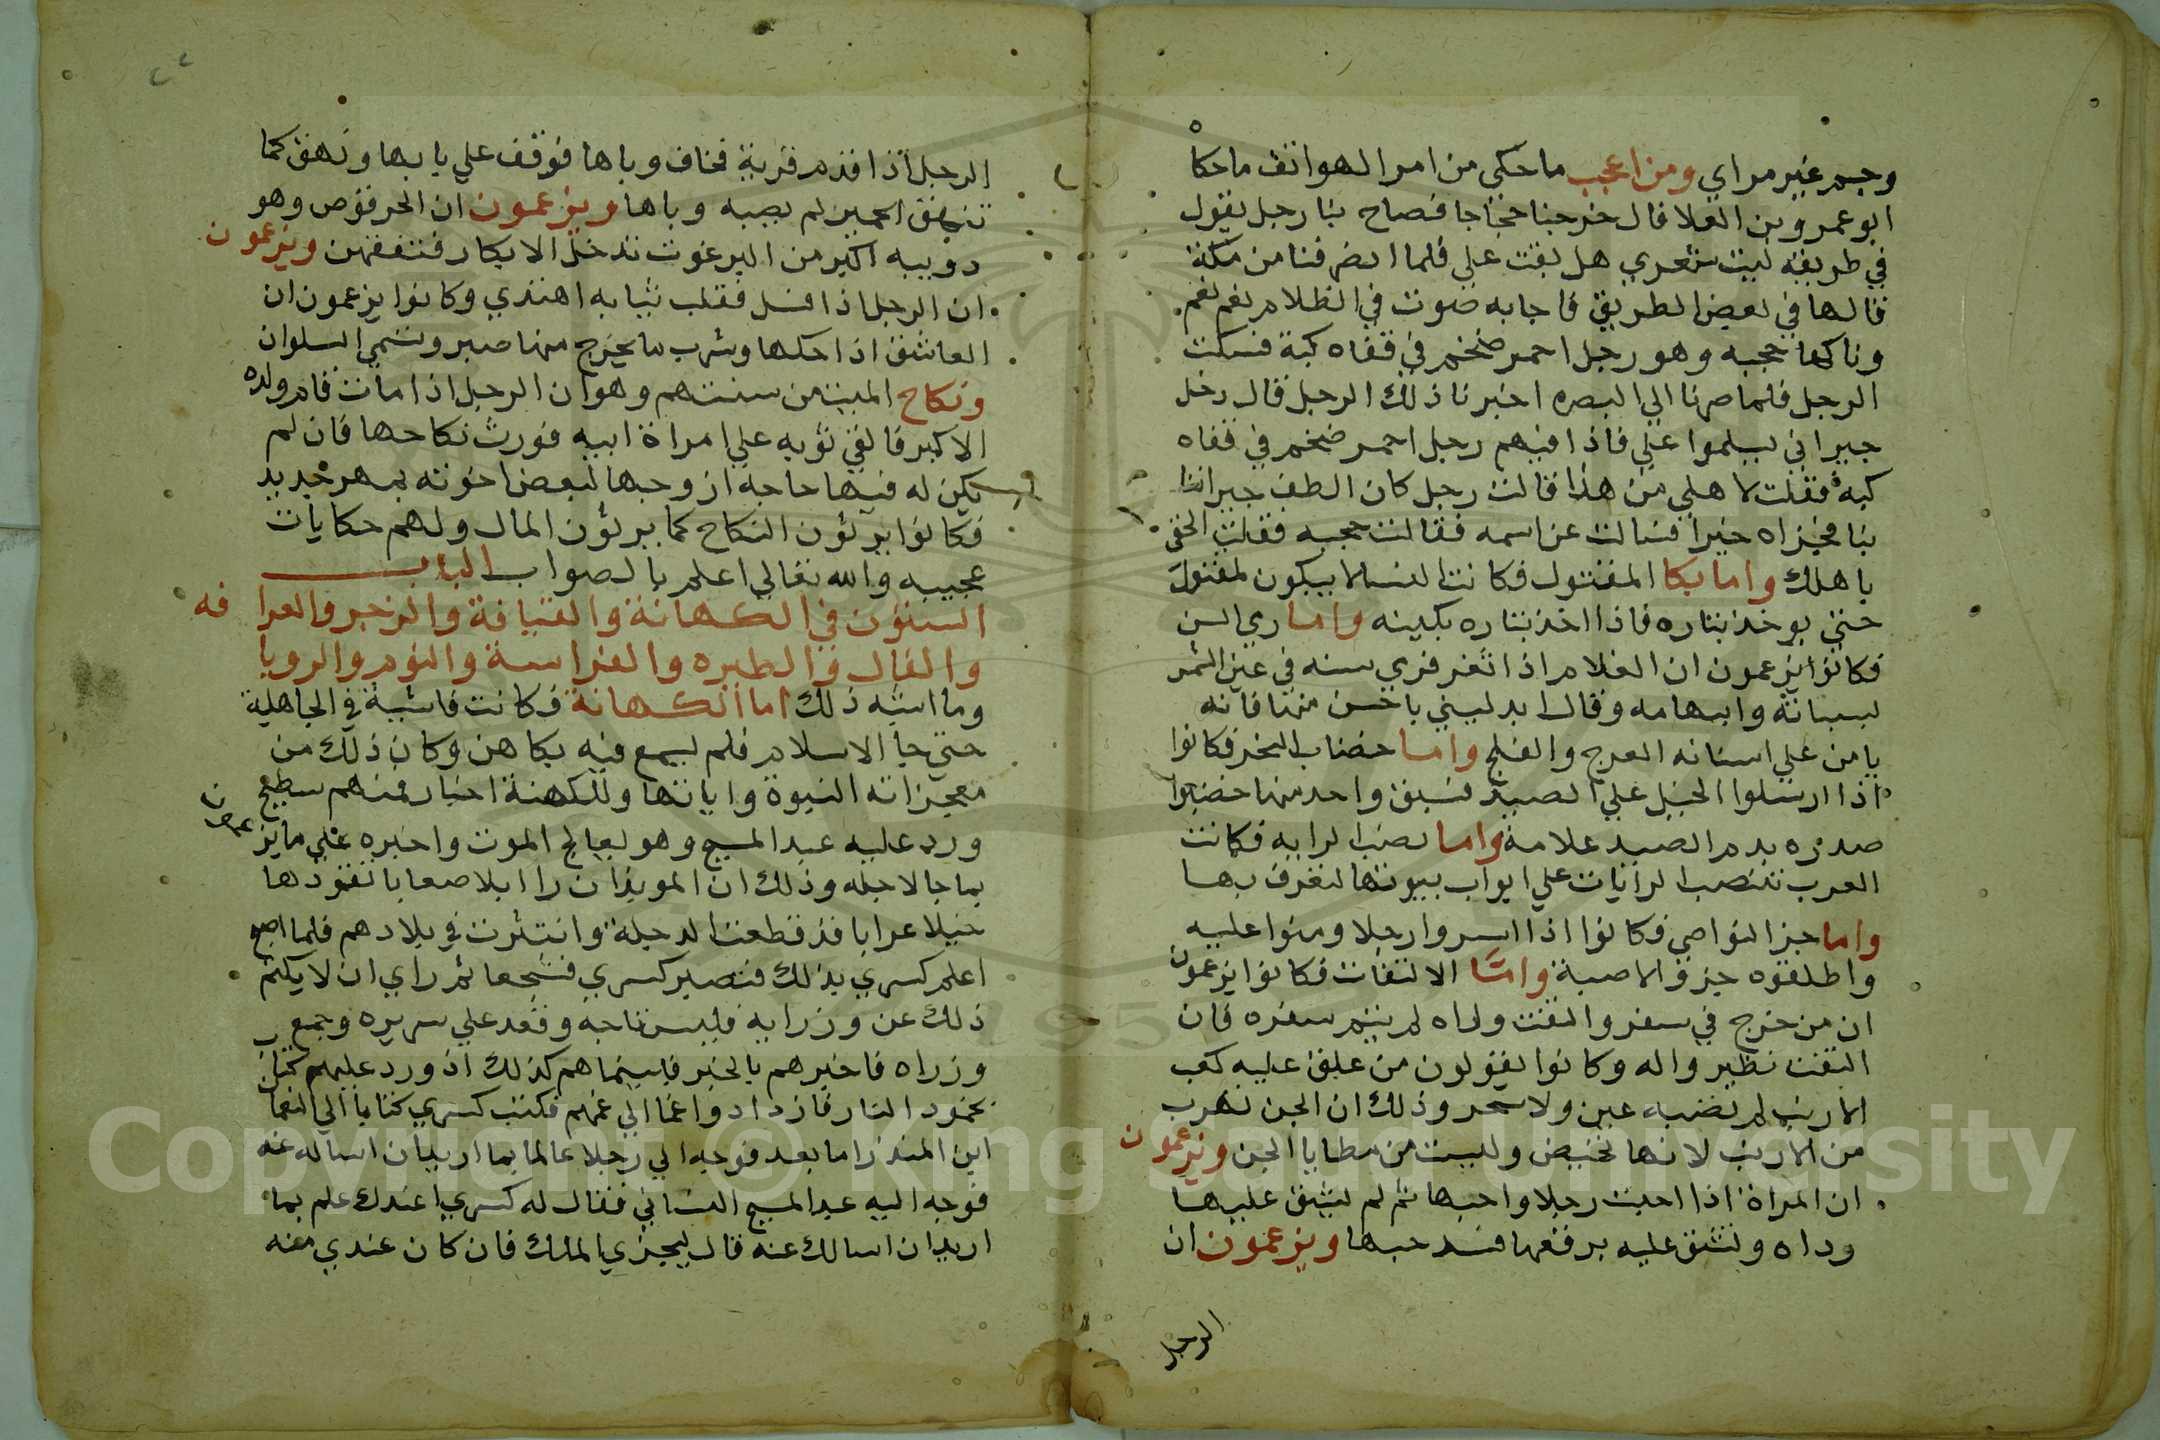 وجسم غير مراي ومن اعجب ما حكى من امر الهواتف ما حكاه
ابو عمرو بن العلا قال خرجنا حجاجا فصاح بنا رجل يقول
في طريقه ليت شعري هل بغت علي فلما انصرفنا من مكة
قالها في بعض الطريق فاجابه صوت في الظلام نعم نعم
وناكها حجبه وهو رجل احمر ضخم في قفاه كبة فسكت
الرجل فلما صرنا الي البصره اخبرنا ذلك الرجل قال دخل
جيراني يسلموا علي فاذا فيهم رجل احمر ضخم في قفاه
كبة فقلت لاهلي من هذا قالت رجل كان الطف جيراننا
بنا فجزاه خيرا فسالت عن اسمه فقالت حجبه فقلت الحقى
باهلك واما بكا المقتول فكانت النسا لا يبكون لمقتول
حتى يوخذ بثاره فاذا اخذ بثاره بكينه واما رمي السن
فكانوا يزعمون ان الغلام اذا اثغر فرمي سنه في عين الشمر
بسبابته وابهامه وقال ابدليني باحسن منها فانه
يامن علي اسنانه العوج والفلج واما خضاب النحر فكانوا
اذا ارسلوا الخيل علي الصيد فسبق واحد منها خضبوا
صدره بدم الصيد علامة واما نصب الرايه فكانت
العرب تنصب الرايات علي ابواب بيوتها لتعرف بها
واما جز النواصي فكانوا اذا اسروا رجلا ومنوا عليه
واطلقوه جزوا ناصية واما الالتفات فكانوا يزعمون
ان من خرج في سفر والتفت وراه لم يتم سفره فان
التفت تطيروا له وكانوا يقولون من علق عليه كعب
الارنب لم تصبه عين ولا سحر وذلك ان الجن تهرب
من الارنب لانها تحيض وليست من مطايا الجن ويزعمون
ان المراة اذا احبت رجلا واحبها ثم لم يشق عليها
رداه وتشق عليه برقعها فسد حبها ويزعمون ان
الرجل
الرجل اذا قدم قرية فخاف وباها فوقف علي بابها ونهق كما
تنهق الحمير لم يصبه وباها ويزعمون ان الحرقوص وهو
دويبه اكبر من البرغوث تدخل الابكار فتفتضهن ويزعمون
ان الرجل اذا ضل فقلب ثيابه اهتدي وكانوا يزعمون ان
العاشق اذا حكها وشرب ما يخرج منها صبر وتسمي السلوان
ونكاح الميت من سنتهم وهو ان الرجل اذا مات قام ولده
الاكبر فالقى ثوبه علي امراة ابيه فورث نكاحها فان لم
يكن له فيها حاجه ازوجها لبعض اخوته بمهر جديد
فكانوا يرثون النكاح كما يرثون المال ولهم حكايات
عجيبه والله تعالي اعلم بالصواب الباب
الستون في الكهانة والقيافة والزجر والعرافه
والفال والطيره والفراسة والنوم والرويا
وما اشبه ذلك اما الكهانة فكانت فاشية في الجاهلية
حتي جا الاسلام فلم يسمع فيه بكاهن وكان ذلك من
معجزاته النبوة واياتها وللكهنة اخبار فمنهم سطيح
ورد عليه عبد المسيح وهو يعالج الموت واخبره علي ما يزعمون
بما جا لاجله وذلك ان الموبذان راا ابلا صعابا تقودها
خيلا عرابا قد قطعت الدجلة وانتشرت في بلادهم فلما اصبح
اعلم كسري بذلك فتصبر كسري فتشجعا ثم راي ان لا يكتم
ذلك عن وزرايه فلبس تاجه وقعد علي سريره وجمع
وزراه فاخبرهم بالخبر فبينما هم كذلك اذ ورد عليهم كتاب
بخمود النار فازدادوا غما الي غمهم فكتب كسري كتابا الي النعمان
ابن المنذر اما بعد فوجه الي رجلا عالما بما اريد ان اساله عنه
فوجه اليه عبد المسيح الغساني فقال له كسري اعندك علم بما
اريد ان اسالك عنه قال ليخبرني الملك فان كان عندي منه
Copyright © King Saud University
1957